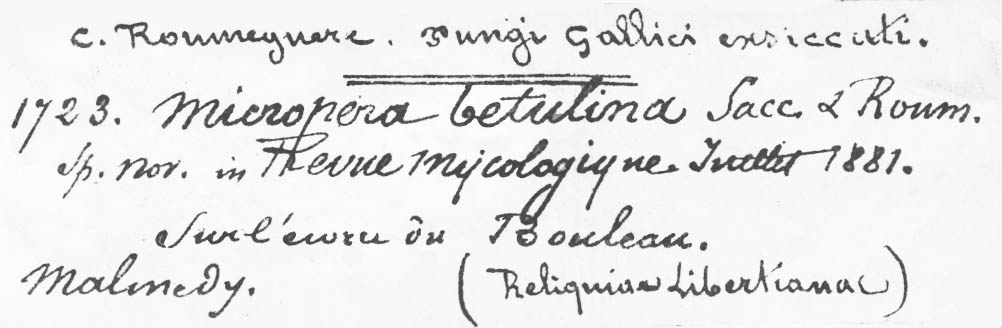 C. Roumeguere. Fungi Gallici exsiccati.
1723. Micropera betulina Sacc. & Roum.
Sp. nov. in Revue Mycologique. Juillet 1881.
Sur l'écorce du Bouleau.
Malmedy. (Reliquiae Libertianae)